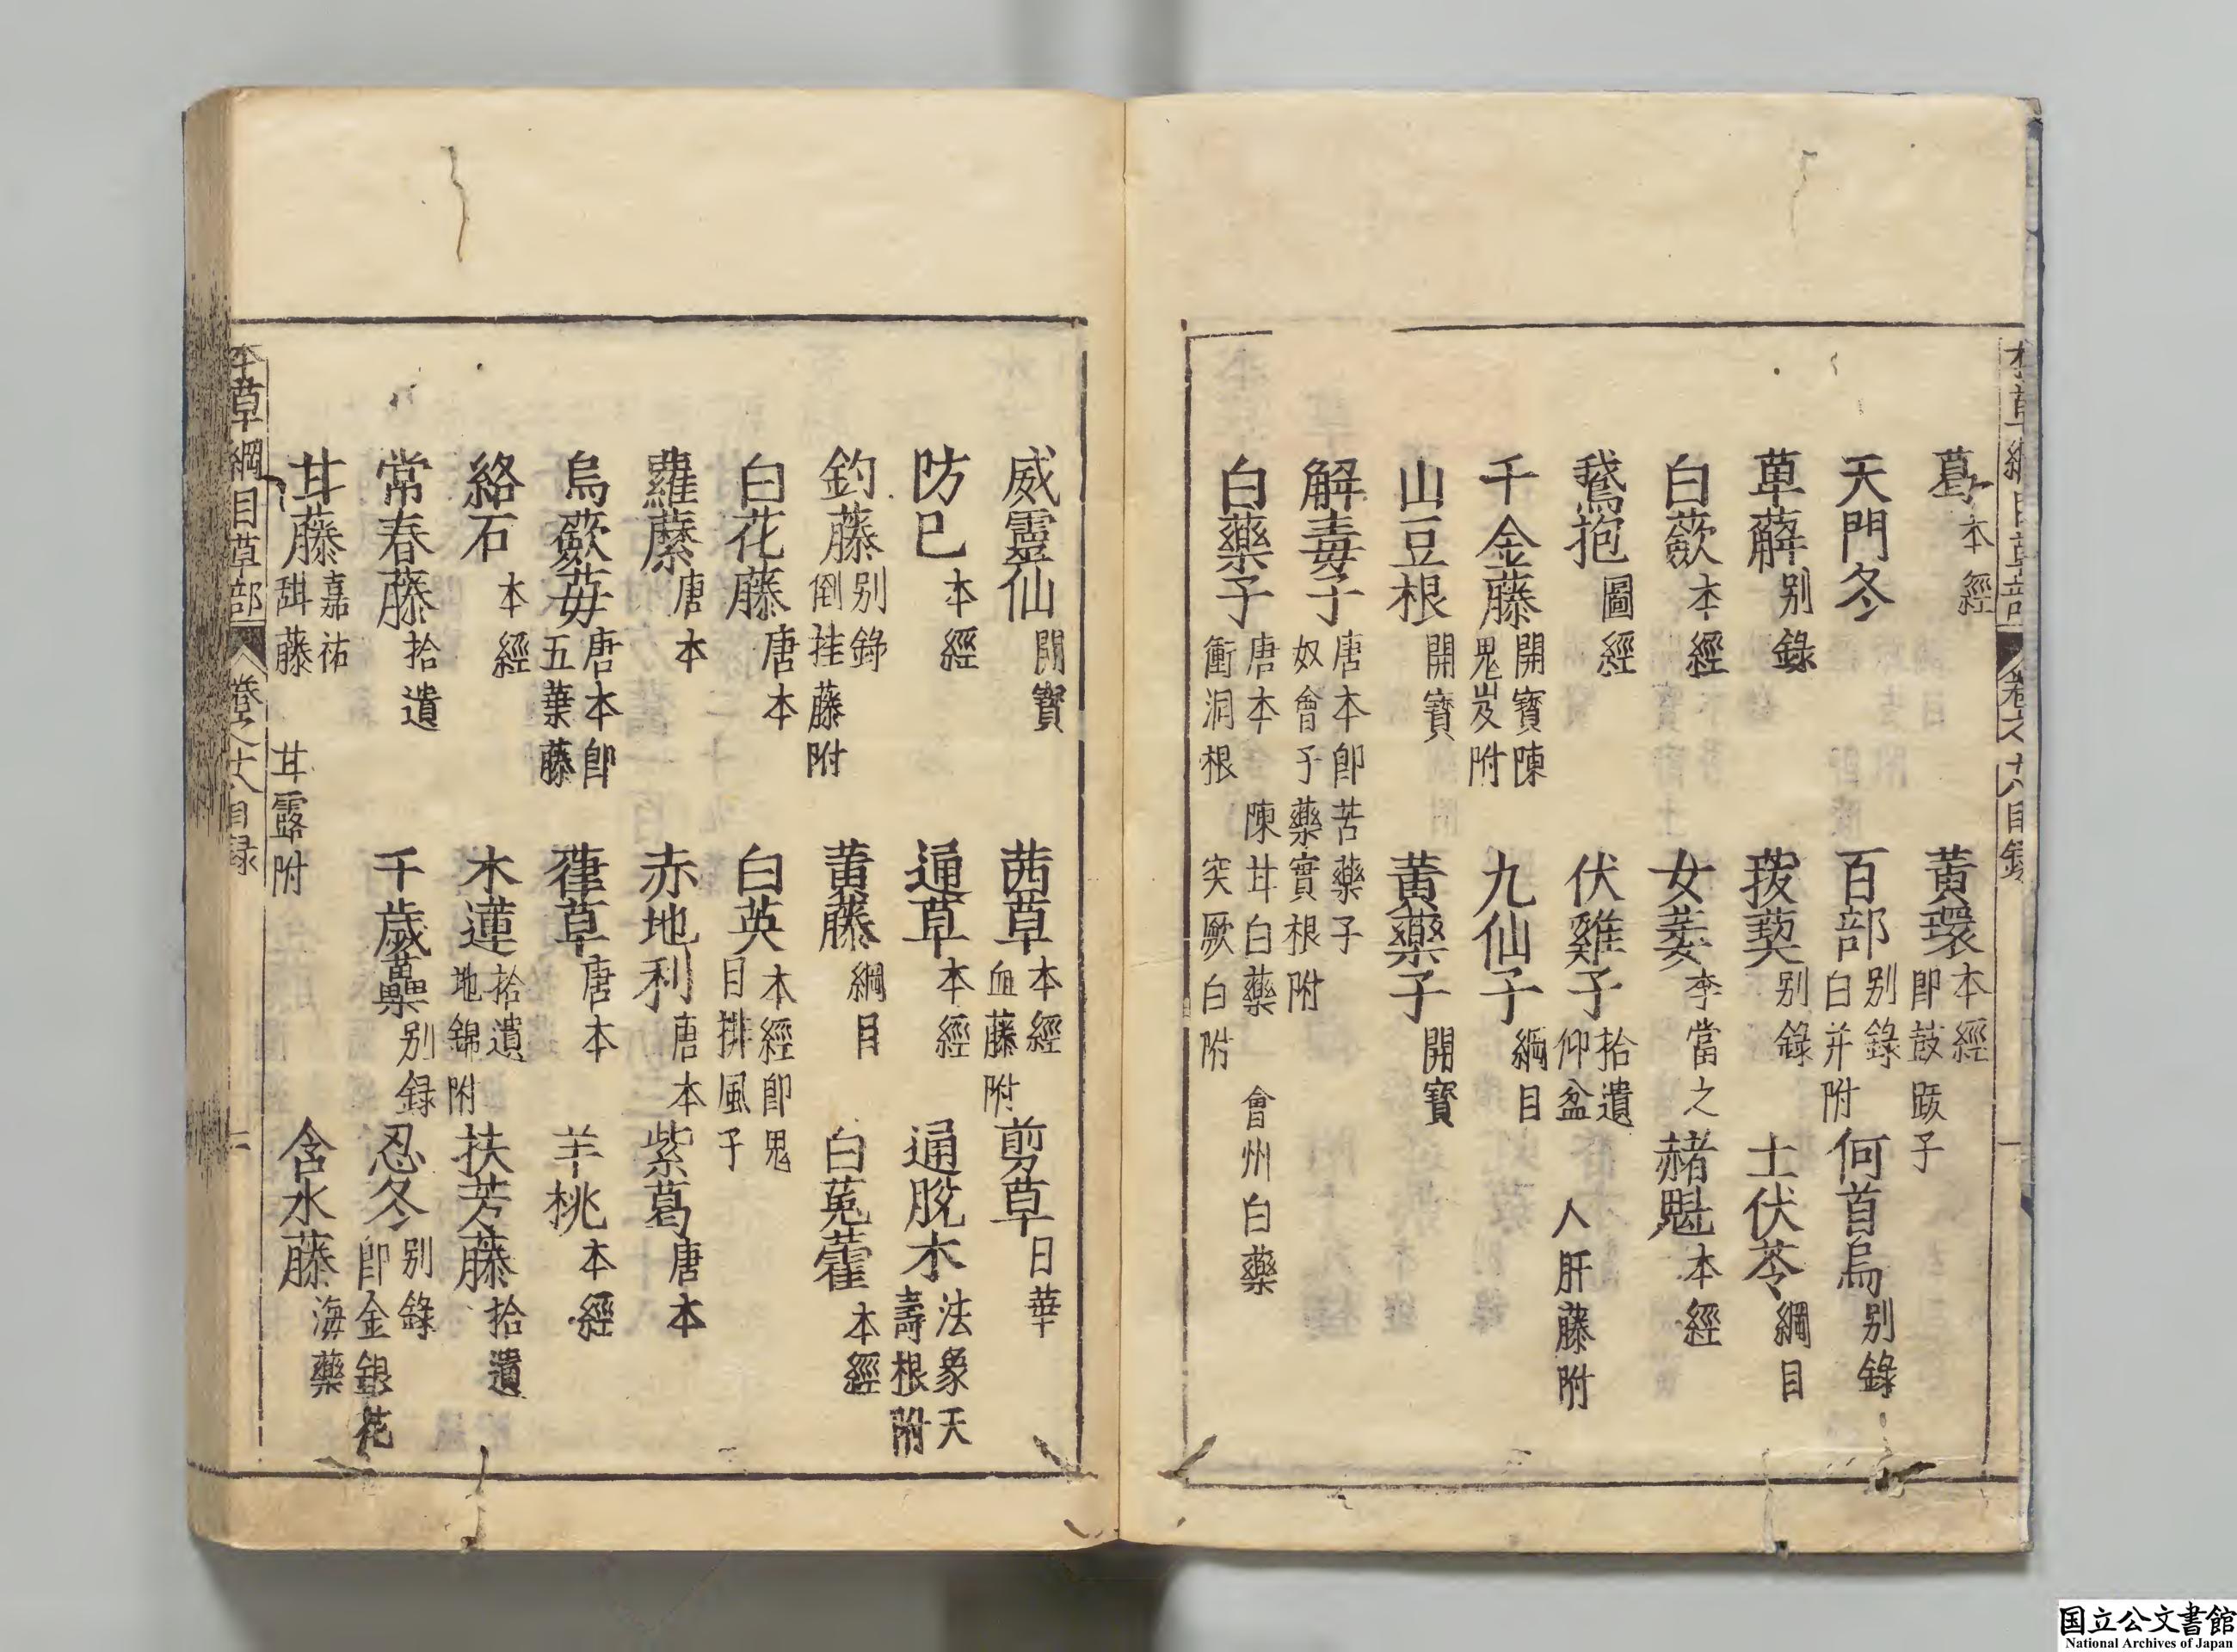 本草綱目草部 卷之十八目錄 一
葛 本經 黃環 本經 即鼓䟦子
天門冬 百部 別錄 白并附 何首烏 別錄
萆薢 別錄 菝葜 別錄 土伏苓 綱目
白蘞 本經 女萎 李當之 赭魁 本經
鵝抱 圖經 伏雞子 拾遺 仰盆 人肝藤附
千金藤 開寶 陳思岌附 九仙子 綱目
山豆根 開寶 黃藥子 開寶
解毒子 唐本 即苦藥子 奴會子 藥實根附
白藥子 唐本 陳甘白藥 會州白藥 衝洞根 突厥白附
威靈仙 開寶 茜草 本經 血藤附 剪草 日華
防已 本經 通草 本經 通脫木 法象 天壽根附
釣藤 別錄 倒挂藤附 黃藤 綱目 白菟藿 本經
白花藤 唐本 白英 本經 即鬼目 排風子
蘿藦 唐本 赤地利 唐本 紫葛 唐本
烏蘞苺 唐本 即五葉藤 葎草 唐本 羊桃 本經
絡石 本經 木蓮 拾遺 地錦附 扶芳藤 拾遺
常春藤 拾遺 千歲虆 別録 忍冬 別錄 即金銀花
甘藤 嘉祐 甜藤 甘露附 含水藤 海藥
本草綱目草部 卷之十八目録 二
国立公文書館
National Archives of Japan